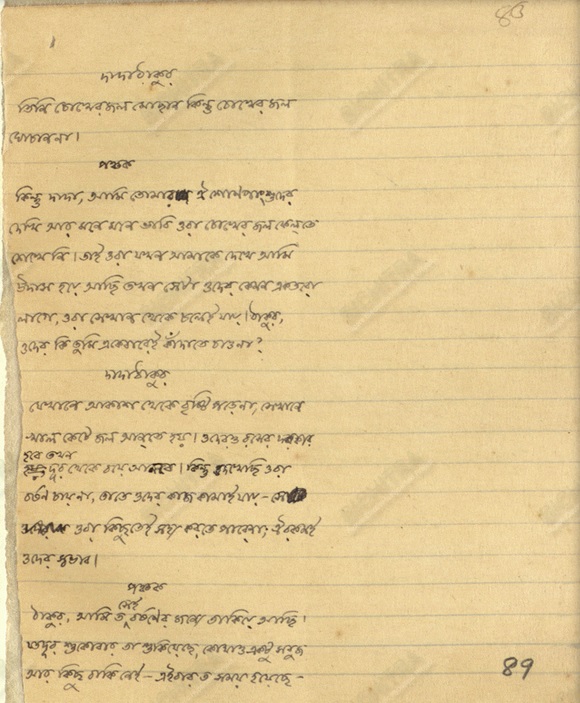 ৪৩
দাদাঠাকুর
তিনি চোখের জল মোছান কিন্তু চোখের জল
ঘোচাননা।
পঞ্চক
কিন্তু দাদা, আমি তোমার ঐ শোণপাংশুদের
দেখি আর মনে মনে ভাবি ওরা চোখের জল ফেলতে
শেখেনি। তাই ওরা যখন আমাকে দেখে আমি
উদাস হয়ে আছি তখন সেটা ওদের কেমন একতরো
লাগে, ওরা সেখান থেকে চলেই যায়। ঠাকুর,
ওদের কি তুমি একেবারেই কাঁদাতে চাওনা?
দাদাঠাকুর
যেখানে আকাশ থেকে বৃষ্টি পড়েনা, সেখানে
খাল কেটে জল আনতে হয়। ওদেরও রসের দরকার
হবে তখন
দূর থেকে বয়ে আনবে। কিন্তু দেখেছি ওরা
বর্ষণ চায়না, তাতে ওদের কাজ কামাই যায় – সে
ওরা কিছুতেই সহ্য করতে পারেনা, ঐ রকমই
ওদের স্বভাব।
পঞ্চক
সেই
ঠাকুর, আমি ত বর্ষণের জন্যে তাকিয়ে আছি।
যতদূর শুকোবার তা শুকিয়েছে, কোথাও একটু সবুজ
আর কিছু বাকি নেই – এইবার ত সময় হয়েছে –
89